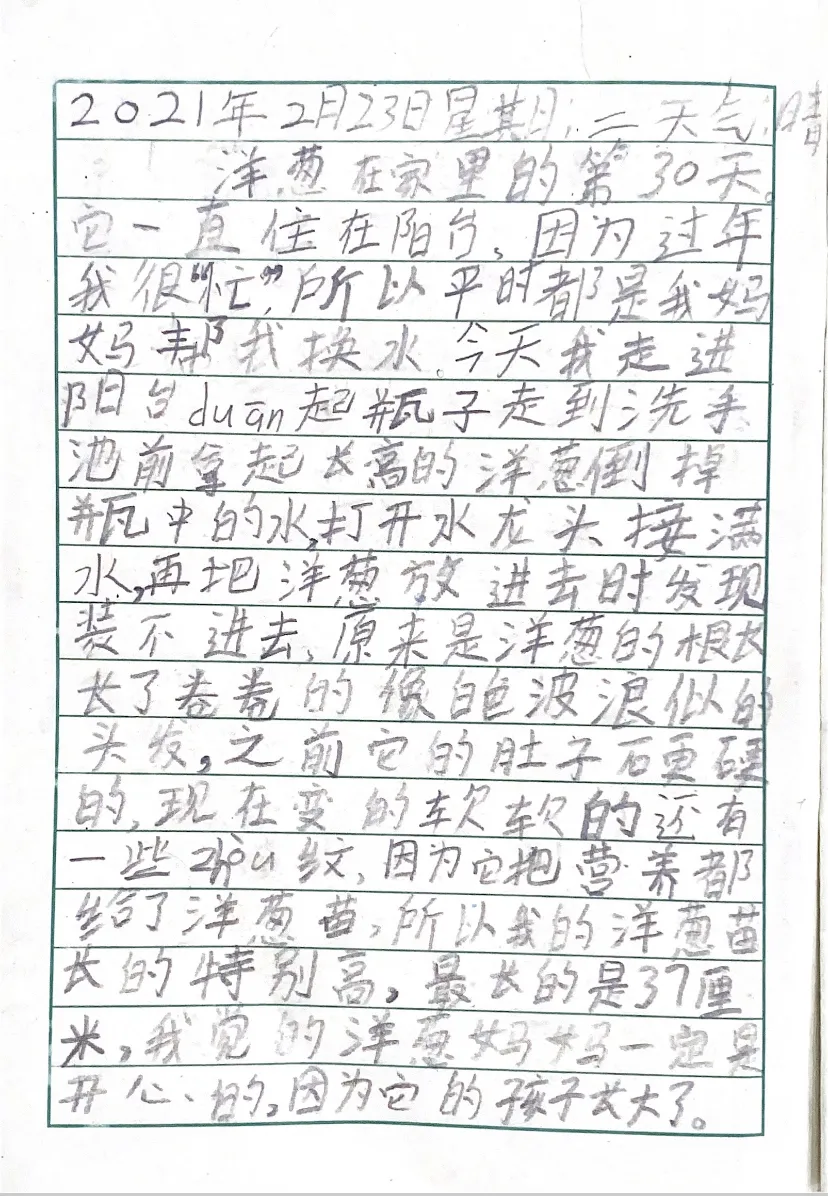 2021年2月23日星期:二天气:晴
洋葱在家里的第30天。
它一直住在阳台,因为过年
我很“忙”,所以平时都是我妈
妈帮我换水。今天我走进
阳台duān起瓶子走到洗手
池前拿起长高的洋葱倒掉
瓶中的水,打开水龙头接满
水,再把洋葱放进去时发现
装不进去,原来是洋葱的根长
长了卷卷的像白色波浪似的
头发,之前它的肚子硬硬
的,现在变的软软的还有
一些zhòu纹,因为它把营养都
给了洋葱苗,所以我的洋葱苗
长的特别高,最长的是37厘
米,我觉的洋葱妈妈一定是
开心的,因为它的孩子长大了。